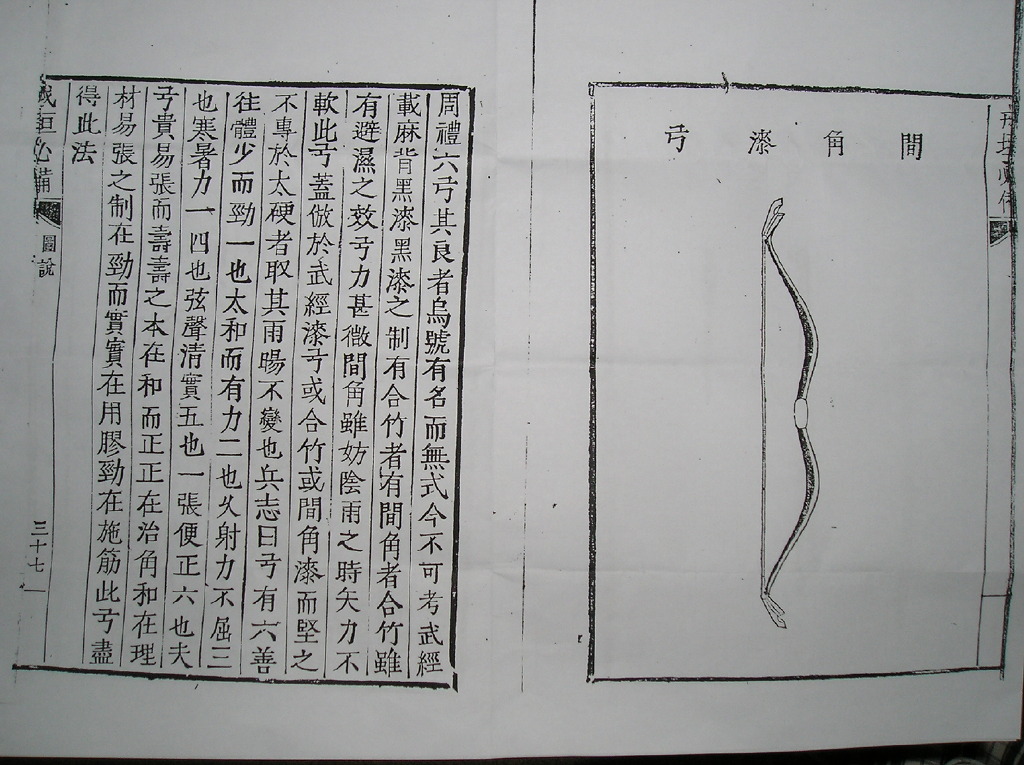 間角漆弓
周禮六弓其良者烏號有名而無式今不可考武經
載麻背黑漆黑漆之制有合竹者有間角者合竹雖
有避濕之效弓力甚微間角雖妨陰雨之時矢力不
軟此弓蓋倣於武經漆弓或合竹或間角漆而堅之
不專於太硬者取其雨暘不變也兵志曰弓有六善
往體少而勁一也太和而有力二也久射力不屈三
也寒暑力一四也弦聲清實五也一張便正六也夫
弓貴易張而壽壽之本在和而正正在治角和在理
材易張之制在勁而實實在用膠勁在施筋此弓盡
得此法
垣必備
圖說
三十七